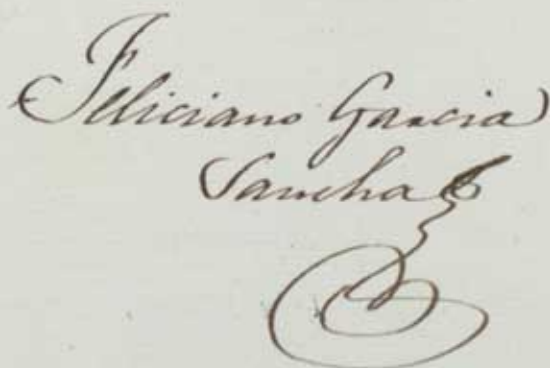 Feliciano Garcia
Sancha